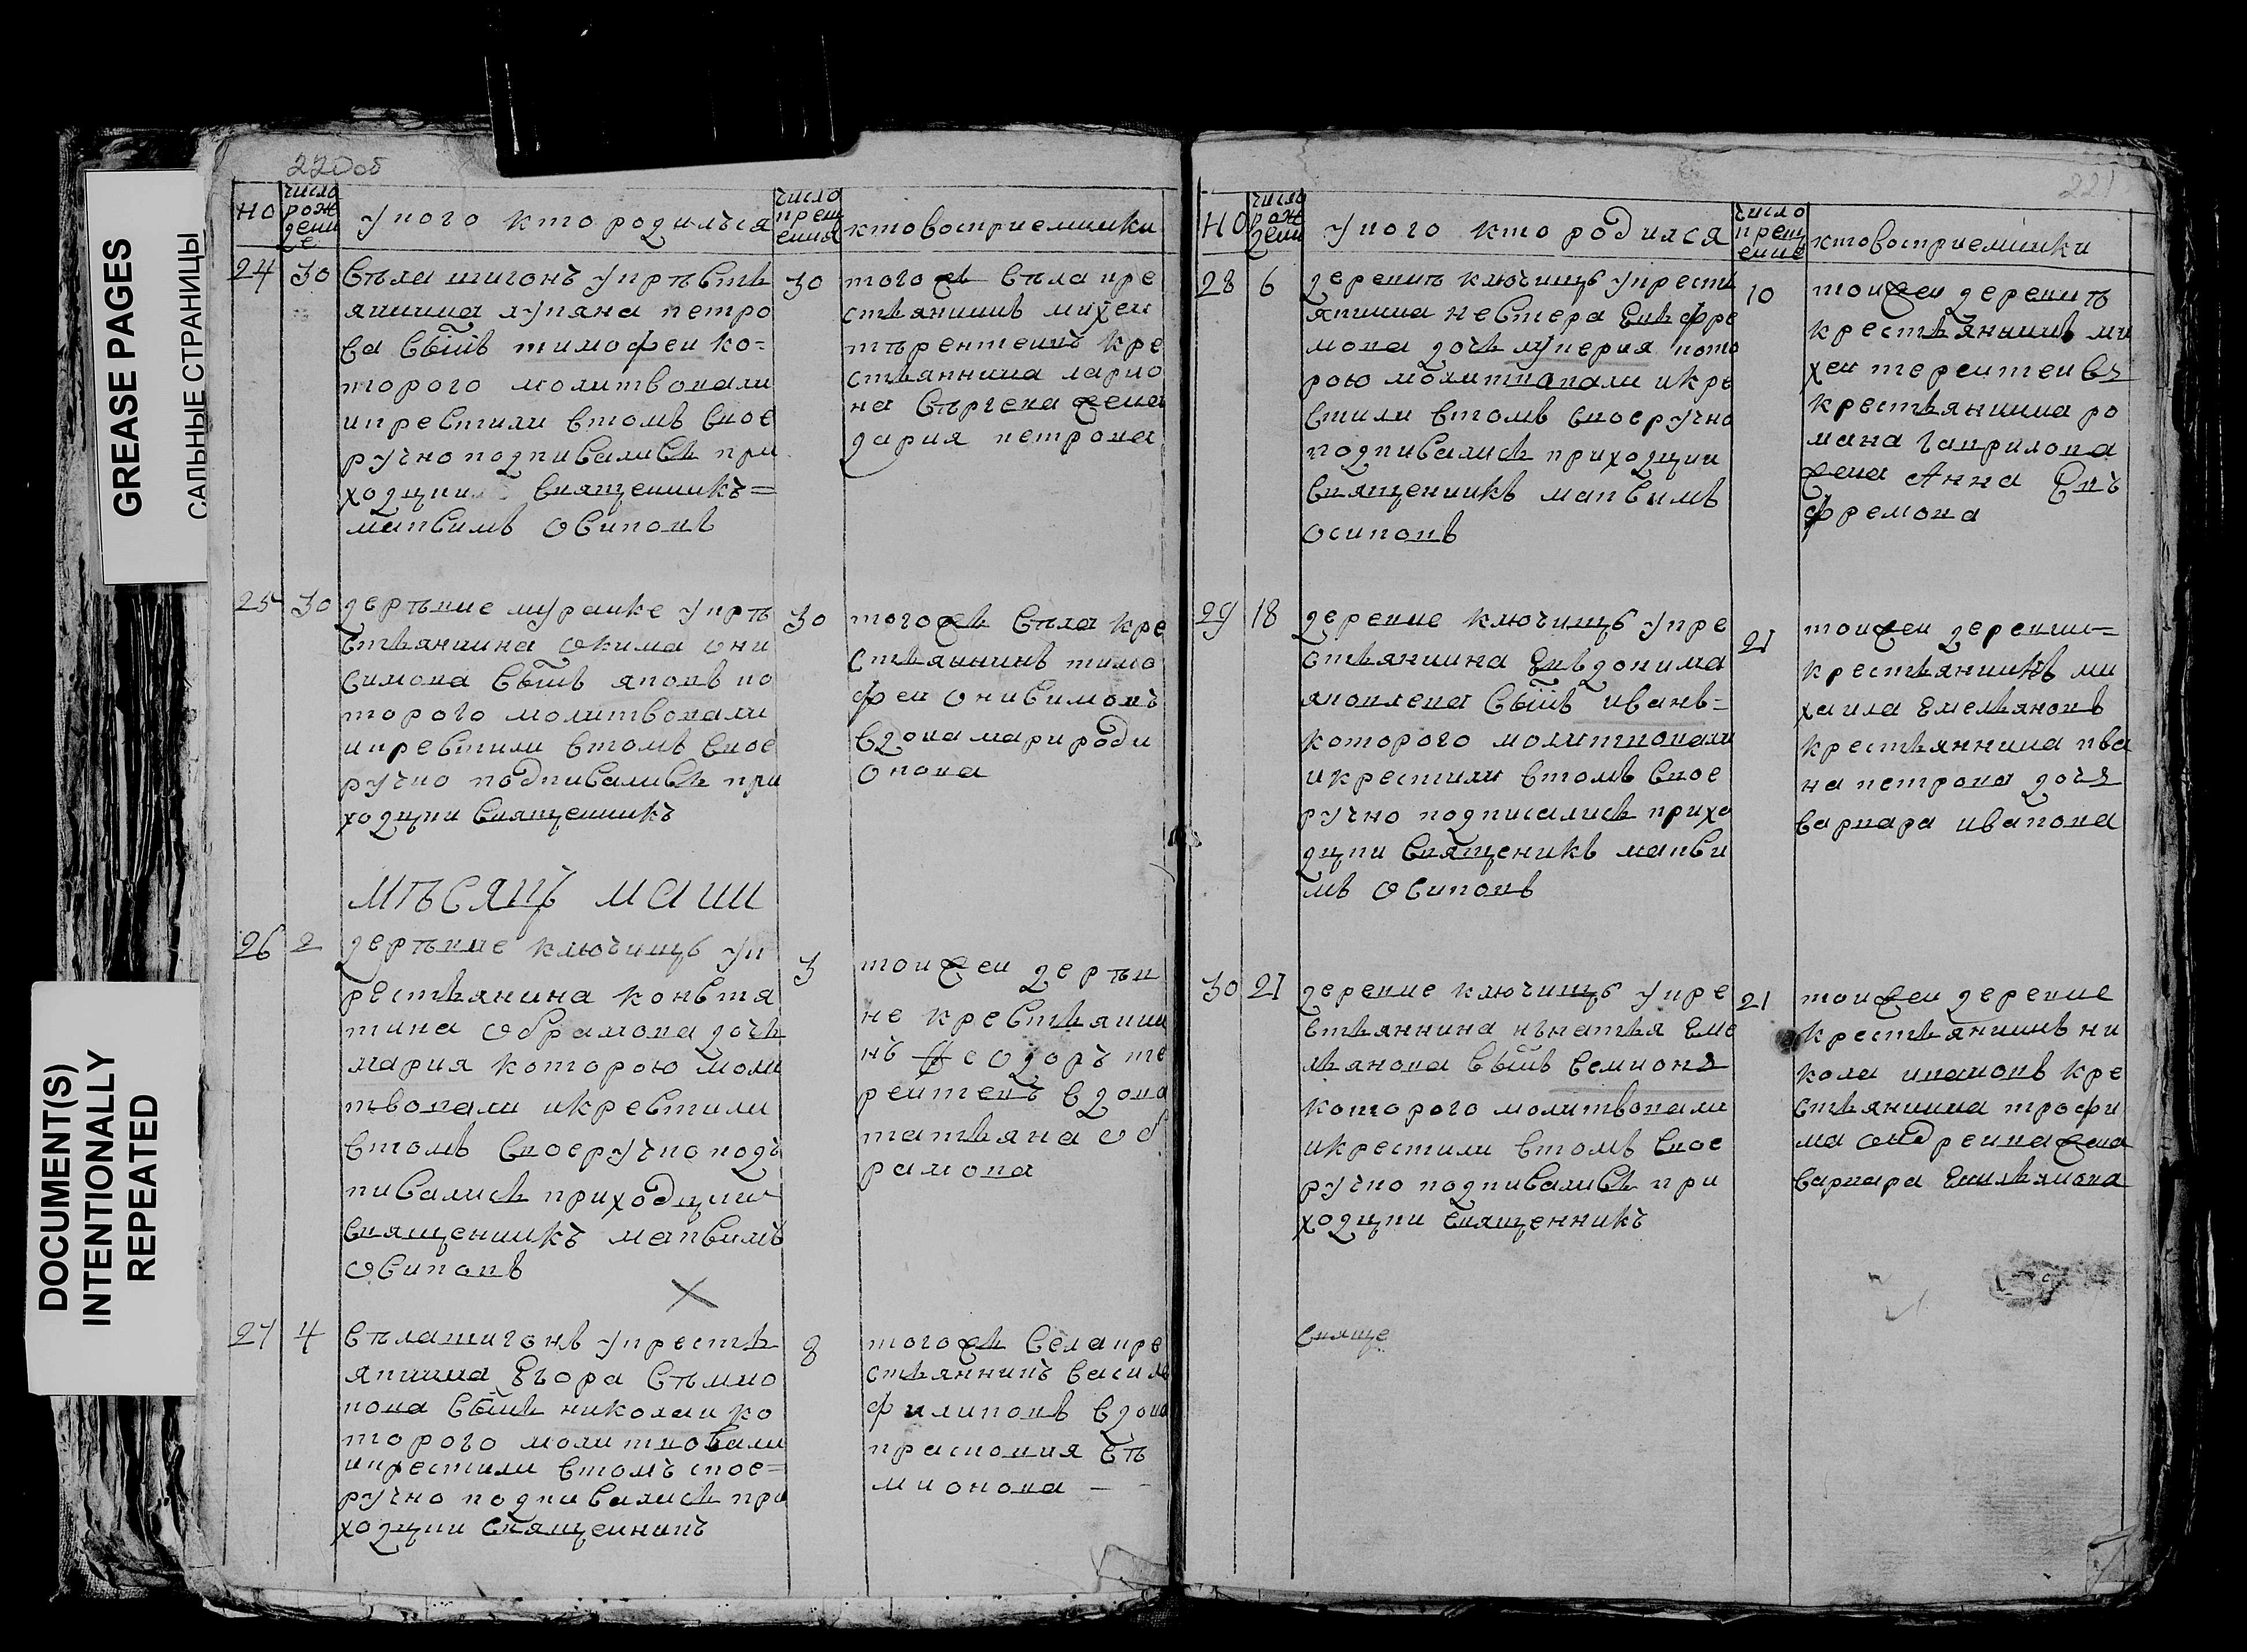 GREASE PAGES
САЛЬНЫЕ СТРАНИЦЫ
DOCUMENT(S)
INTENTIONALLY
REPEATED
220об
но
число
рож
дени
е
у кого кто родилъся
число
крещ
ения
кто восприемники
24 30
села шигонъ у кръсть
янина лукяна петро
ва сынъ тимофеи ко=
торого молитвовали
и крестили в томъ свое
ручно подписались при
ходцки священникъ=
максимъ осиповъ
30
того жь съла кре
стьянинъ михеи
търентеивъ кре
стьянина ларио
на съргева жена
дария петрова
25 30
деръвне муранке у кръ
стьянина окима они
симова сынъ яковъ ко
торого молитвовали
и крестили в томъ свое
ручно подписались при
ходцки священникъ
30
того жь съла кре
стьянинъ тимо
феи онисимовъ
вдова мари роди
онова
мъсяцъ маии
26 2
деръвне ключищъ у к
рестьянина констя
тина обрамова дочь
мария которою моли
твовали и крестили
в томъ своеручно подъ
писались приходцки
священникъ максимъ
осиповъ
3
тои жеи деръв
не крестьяни
нъ феодоръ те
рентевъ вдова
татьяна об
рамова
27 4
съла шигонъ у кресть
янина егора съмио
нова сынъ николаи ко
торого молитвовали
и крестили в томъ свое=
ручно подписались при
ходцки священникъ
8
того жь села кре
стьянинъ василе
филиповъ вдова
прасковия съ
мионова
221
но
число
рож
дени
у кого кто родился
число
крещ
ение
кто восприемники
28 6
деревнъ ключищъ у кресть
янина нестера евъфре
мова дочь лукерия кото
рою молитвовали и кре
стили в томъ своеручно
подписались приходцки
священникъ максимъ
осиповъ
10
тои жеи деревнъ
крестьянинъ ми
хеи терентеивъ
крестьянина ро
мана гаврилова
жена Анна Евъ
фремова
29 18
деревне ключищъ у кре
стьянина Евъдокима
яковлева сынъ иванъ=
которого молитвовали
и крестили в томъ свое
ручно подписались прихо
дцки священикъ макси
мъ осиповъ
21
тои жеи деревни=
крестьянинъ ми
хаила емельяновъ
крестьянина ива
на петрова дочя
варвара иванова
30 21
деревне ключищъ у кре
стьянина игнатья еме
льянова сынъ семионъ
которого молитвовали
и крестили в томъ свое
ручно подписались при
ходцки священникъ
21
тои жеи деревне
крестьянинъ ни
кола кре
стьянина трофи
ма андреива жена
варвара емильянова
свяще